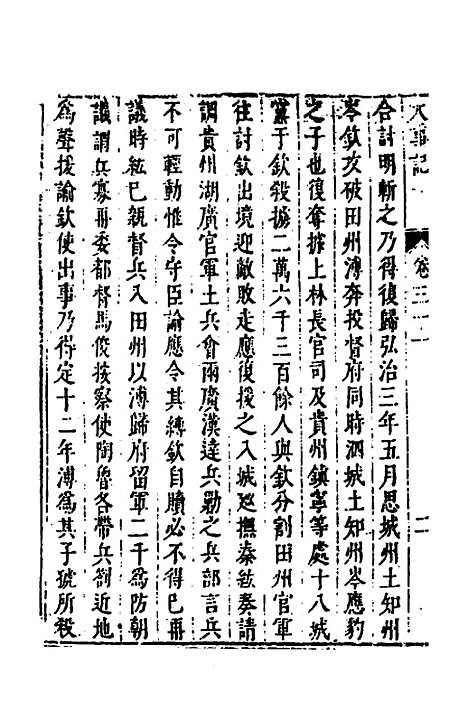 大事記 卷三十一 二
合討明斬之乃得復歸弘治三年五月思城州土知州
岑欽攻破田州溥奔投督府同時泗城土知州岑應豹
之子也復奪據上林長官司及貴州鎮寧等處十八城
黨于欽殺擄二萬六千三百餘人與欽分割田州官軍
往討欽出境迎敵敗走應復援之入城廵撫秦紘奏請
調貴州湖廣官軍土兵會兩廣漢達兵勦之兵部言兵
不可輕動惟令守臣諭應令其縛欽自贖必不得已再
議時紘已親督兵入田州以溥歸府留軍二千爲防朝
議謂兵寡再委都督馬俊按察使陶魯各帶兵劄近地
爲聲援諭欽使出事乃得定十二年溥爲其子猇所殺